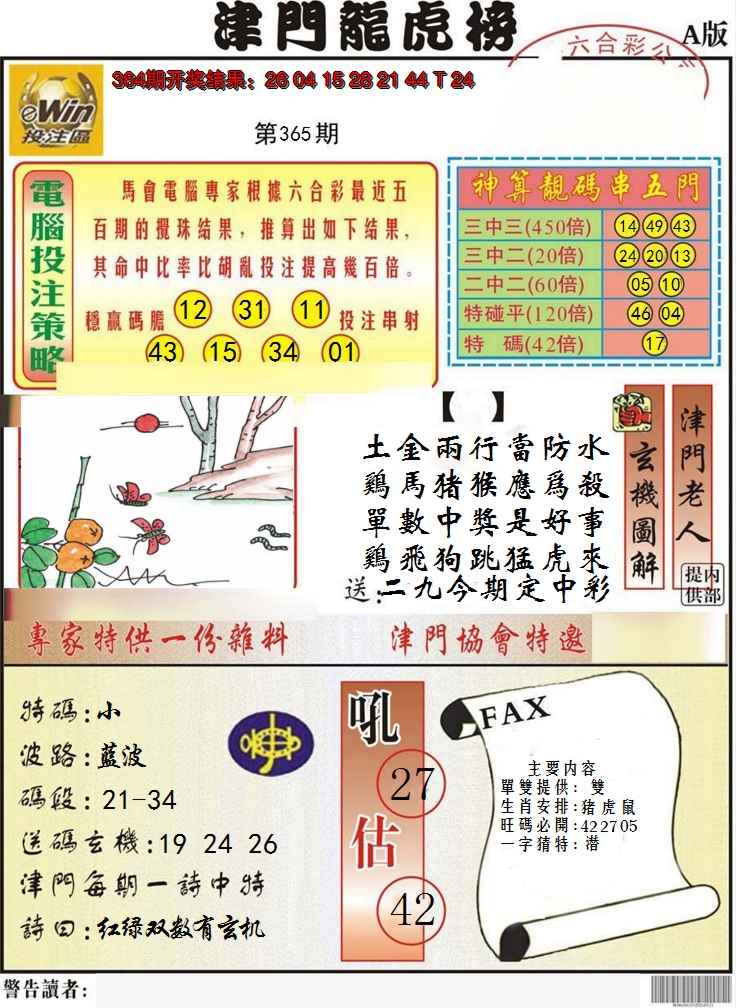 津門龍虎榜
六合彩公司
A版
eWin
投注區
364期开奖结果：26 04 15 28 21 44 T 24
第365期
電腦投注策略
馬會電腦專家根據六合彩最近五
百期的攪珠结果，推算出如下结果，
其命中比率比胡亂投注提高幾百倍。
穩贏碼膽 12 31 11 投注串射
43 15 34 01
神算靚碼串五門
三中三(450倍) 14 49 43
三中二(20倍) 24 20 13
二中二(60倍) 05 10
特碰平(120倍) 46 04
特 碼(42倍) 17
【 】
土金兩行當防水
鷄馬猪猴應爲殺
單數中獎是好事
鷄飛狗跳猛虎來
送：二九今期定中彩
玄機圖解
津門老人
内部提供
專家特供一份雜料
津門協會特邀
特碼:小
波路:藍波
碼段:21-34
送碼玄機:19 24 26
津門每期一詩中特
詩曰:红绿双数有玄机
吼
27
估
42
FAX
主要内容
單雙提供：雙
生肖安排:猪虎鼠
旺碼必開:422705
一字猜特:潜
警告讀者: